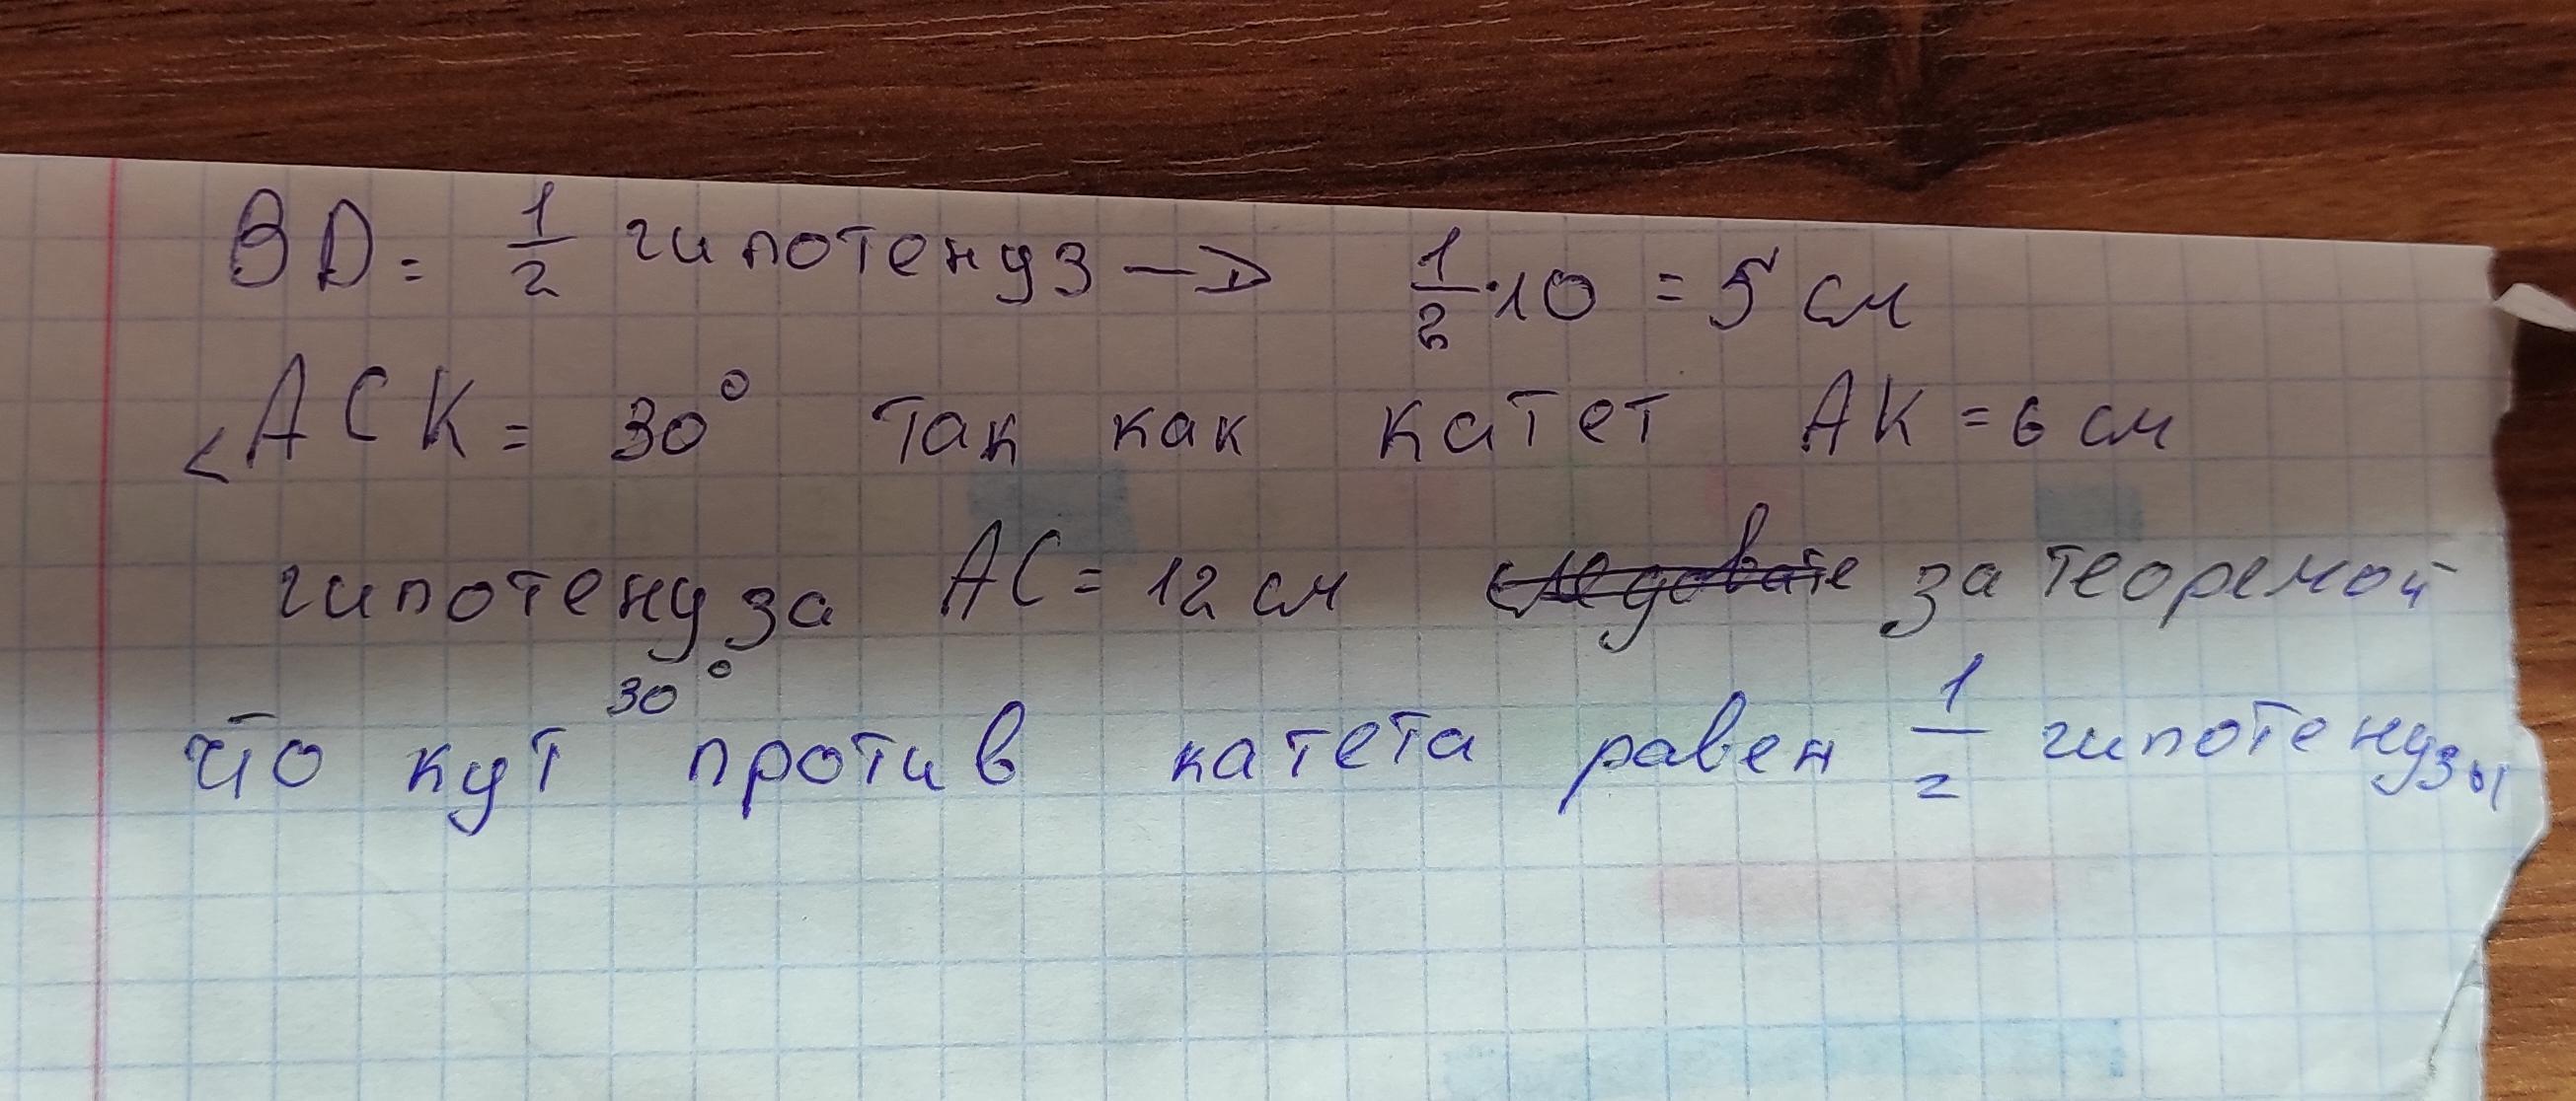 BD = 1/2 гипотенуз → 1/2 · 10 = 5 см
<ACK = 30° так как катет AK = 6 см
гипотенуза AC = 12 см следовате за теоремой
что кут 30° против катета равен 1/2 гипотенузы